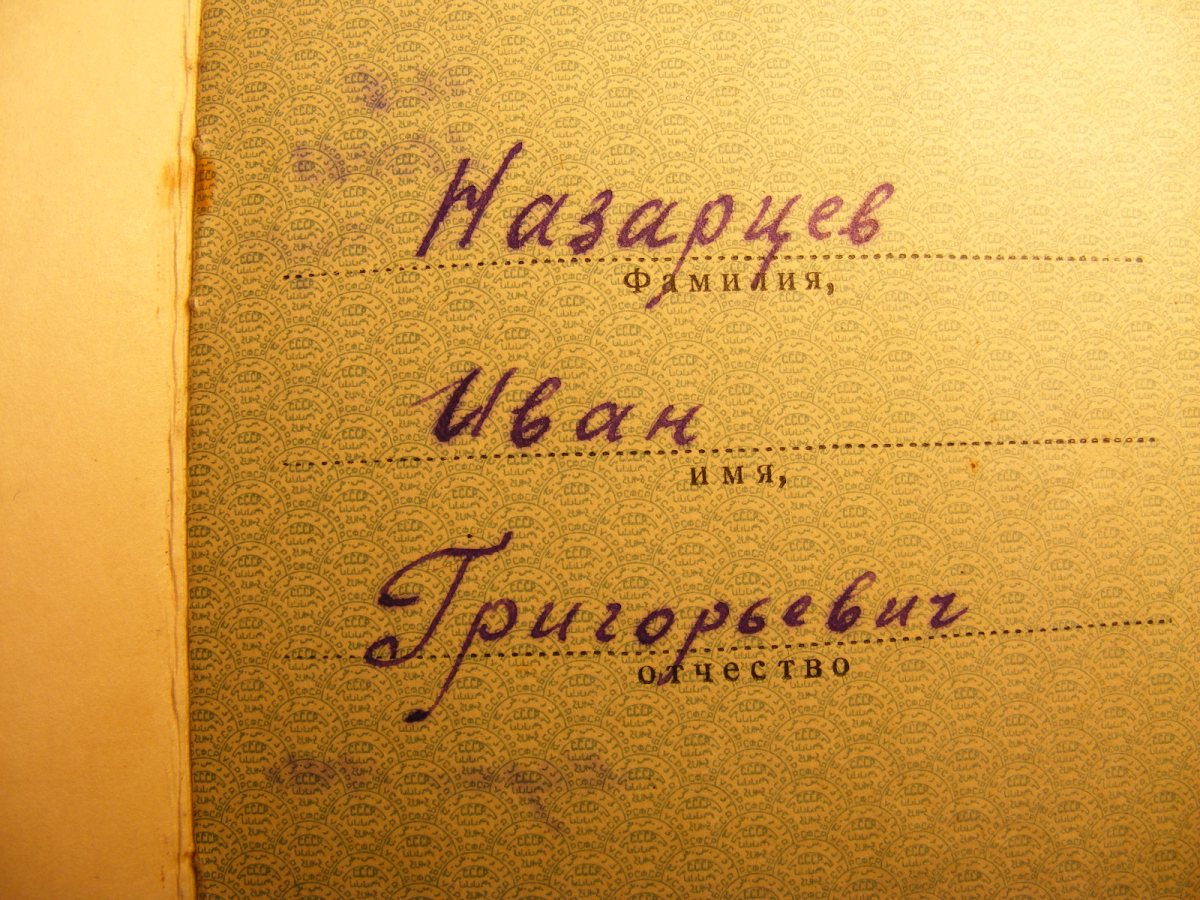 Назарцев
Фамилия,
Иван
имя,
Григорьевич
отчество